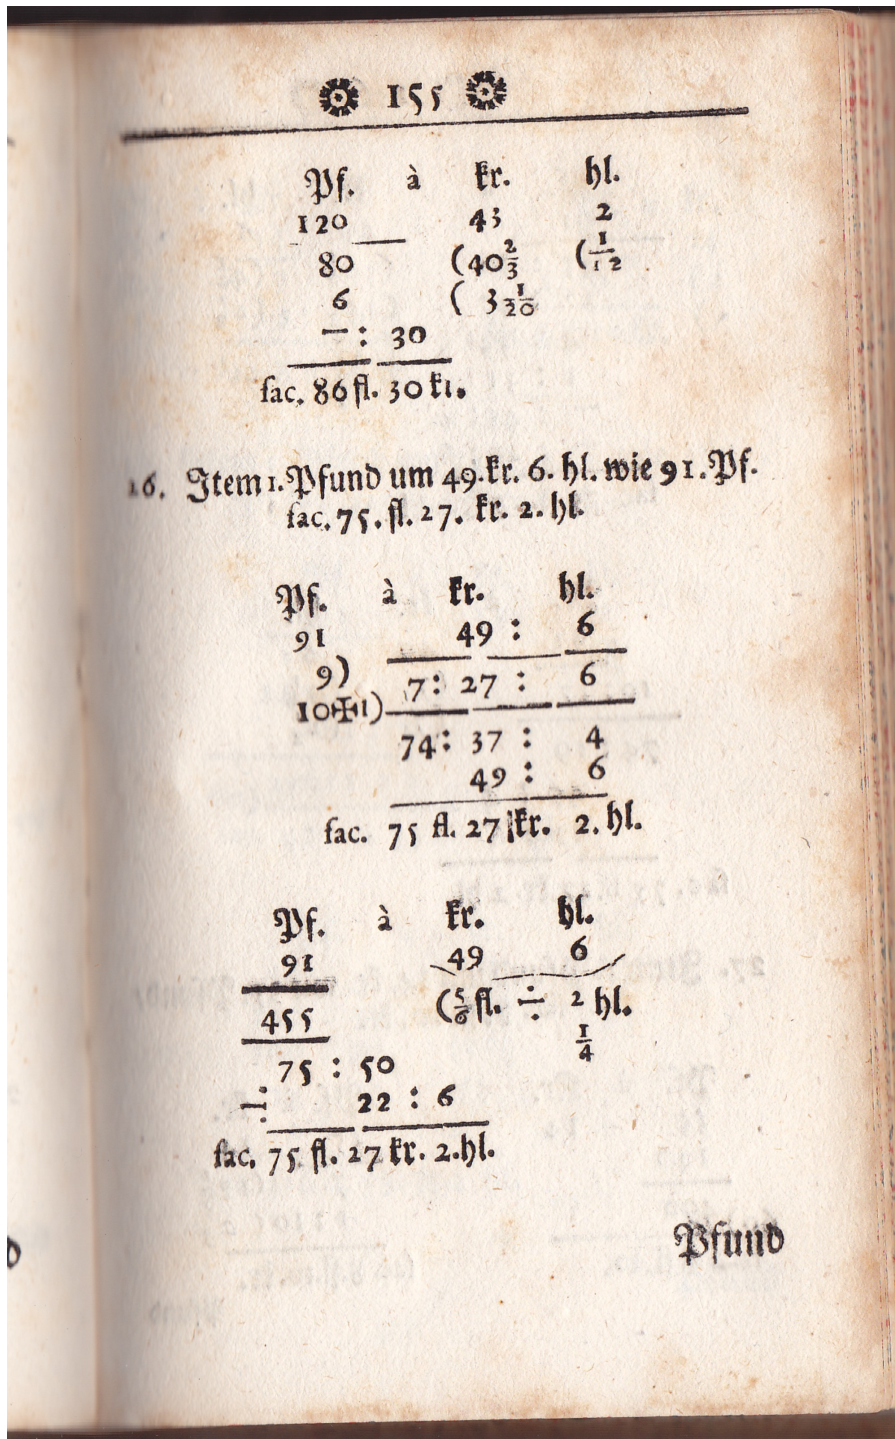 155
Pf. à kr. hl.
120 43 2
80 (40 2/3 (1/12
6 ( 3 1/20
— : 30
fac. 86 fl. 30 kr.
26. Item 1. Pfund um 49. kr. 6. hl. wie 91. Pf.
fac. 75. fl. 27. kr. 2. hl.
Pf. à kr. hl.
91 49 : 6
9) 7: 27 : 6
10✠1)
74: 37 : 4
49 : 6
fac. 75 fl. 27 kr. 2. hl.
Pf. à kr. hl.
91 49 6
455 (5/6 fl. ÷ 2 hl.
1/4
75 : 50
÷ 22 : 6
fac. 75 fl. 27 kr. 2. hl.
Pfund